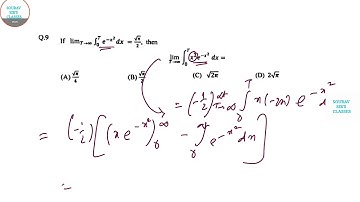 SOURAV SIR'S CLASSES
Q.9 If lim T→∞ ∫₀^T e^{-x²} dx = √π/2, then
lim T→∞ ∫₀^T x² e^{-x²} dx =
(A) √π/4 (B) √π/2 (C) √2π (D) 2√π
= (-1/2) lim T→∞ ∫₀^T x(-2x) e^{-x²} dx
= (-1/2) [ (x e^{-x²})₀^∞ - ∫₀^∞ e^{-x²} dx ]
=
SOURAV SIR'S CLASSES